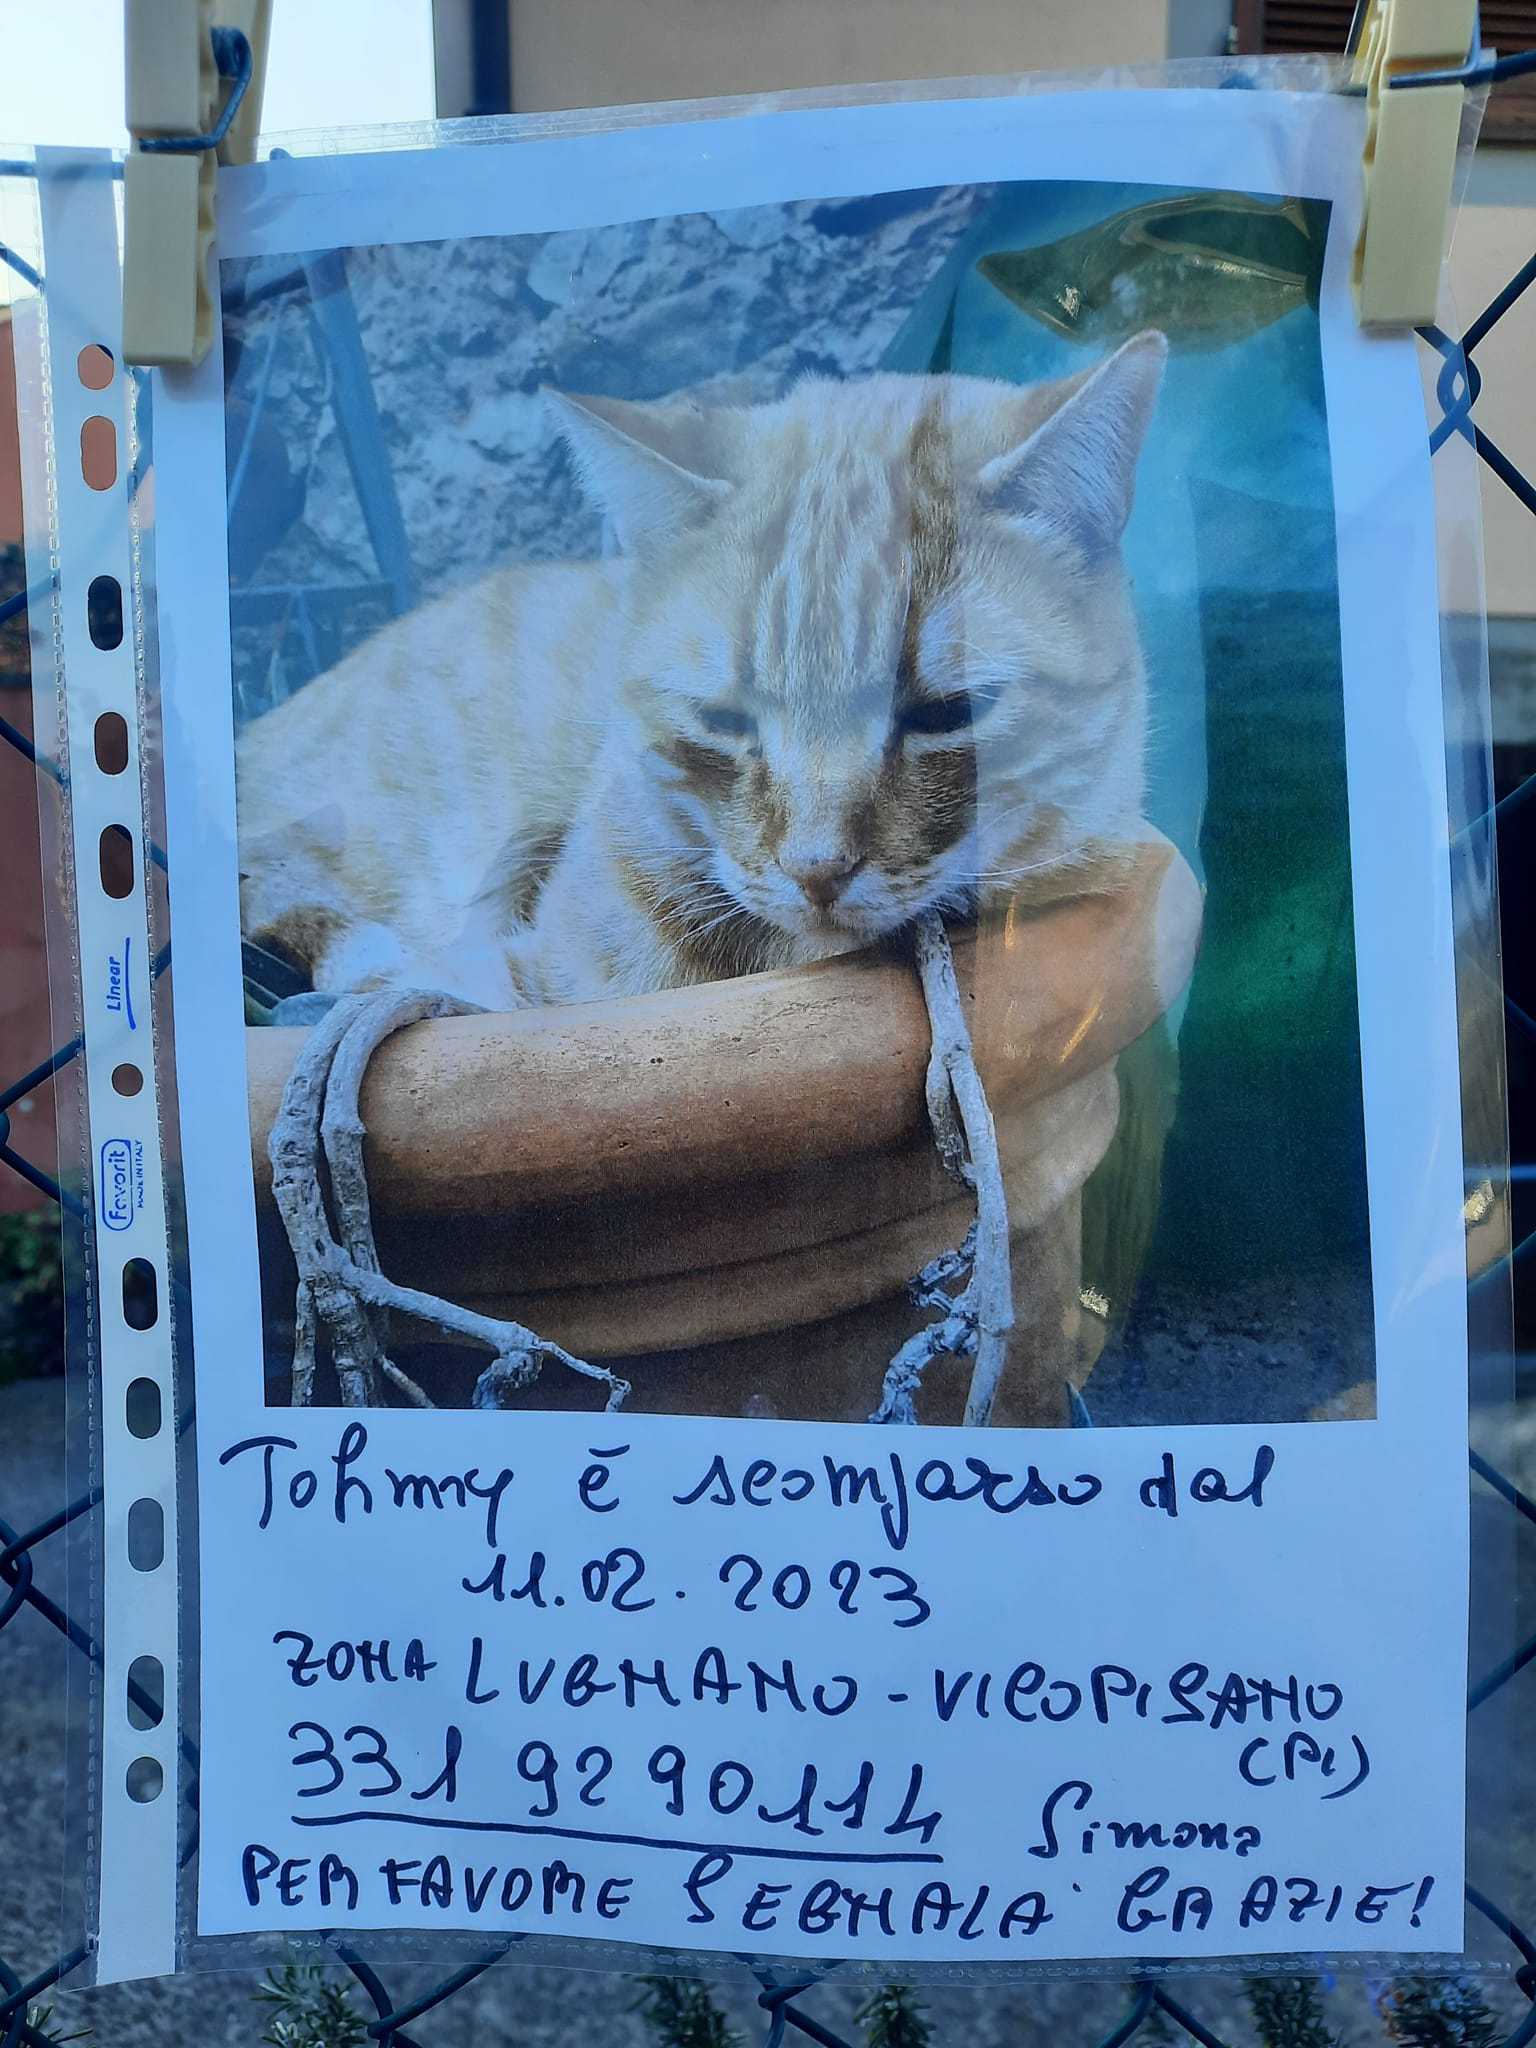 Tohmy è scomparso dal
11.02.2023
ZONA LUGNANO - VICOPISANO
(PI)
331 9290114 Simona
PER FAVORE SEGNALA GRAZIE!
Linear
Favorit
MADE IN ITALY